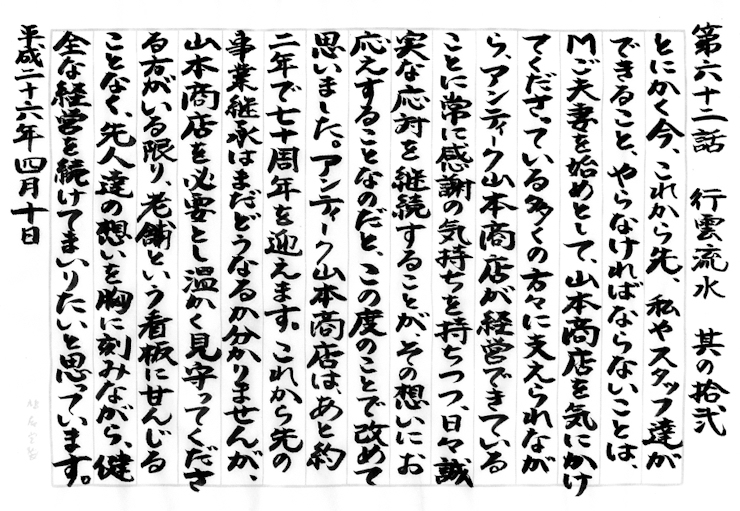 第六十二話　行雲流水　其の拾弐
とにかく今、これから先、私やスタッフ達が
できること、やらなければならないことは、
Mご夫妻を始めとして、山本商店を気にかけ
てくださっている多くの方々に支えられなが
ら、アンティーク山本商店が経営できている
ことに常に感謝の気持ちを持ちつつ、日々誠
実な応対を継続することが、その想いにお
応えすることなのだと、この度のことで改めて
思いました。アンティーク山本商店は、あと約
二年で七十周年を迎えます。これから先の
事業継承はまだどうなるか分かりませんが、
山本商店を必要とし温かく見守ってくださ
る方がいる限り、老舗という看板に甘んじる
ことなく、先人達の想いを胸に刻みながら、健
全な経営を続けてまいりたいと思っています。
平成二十六年四月十日